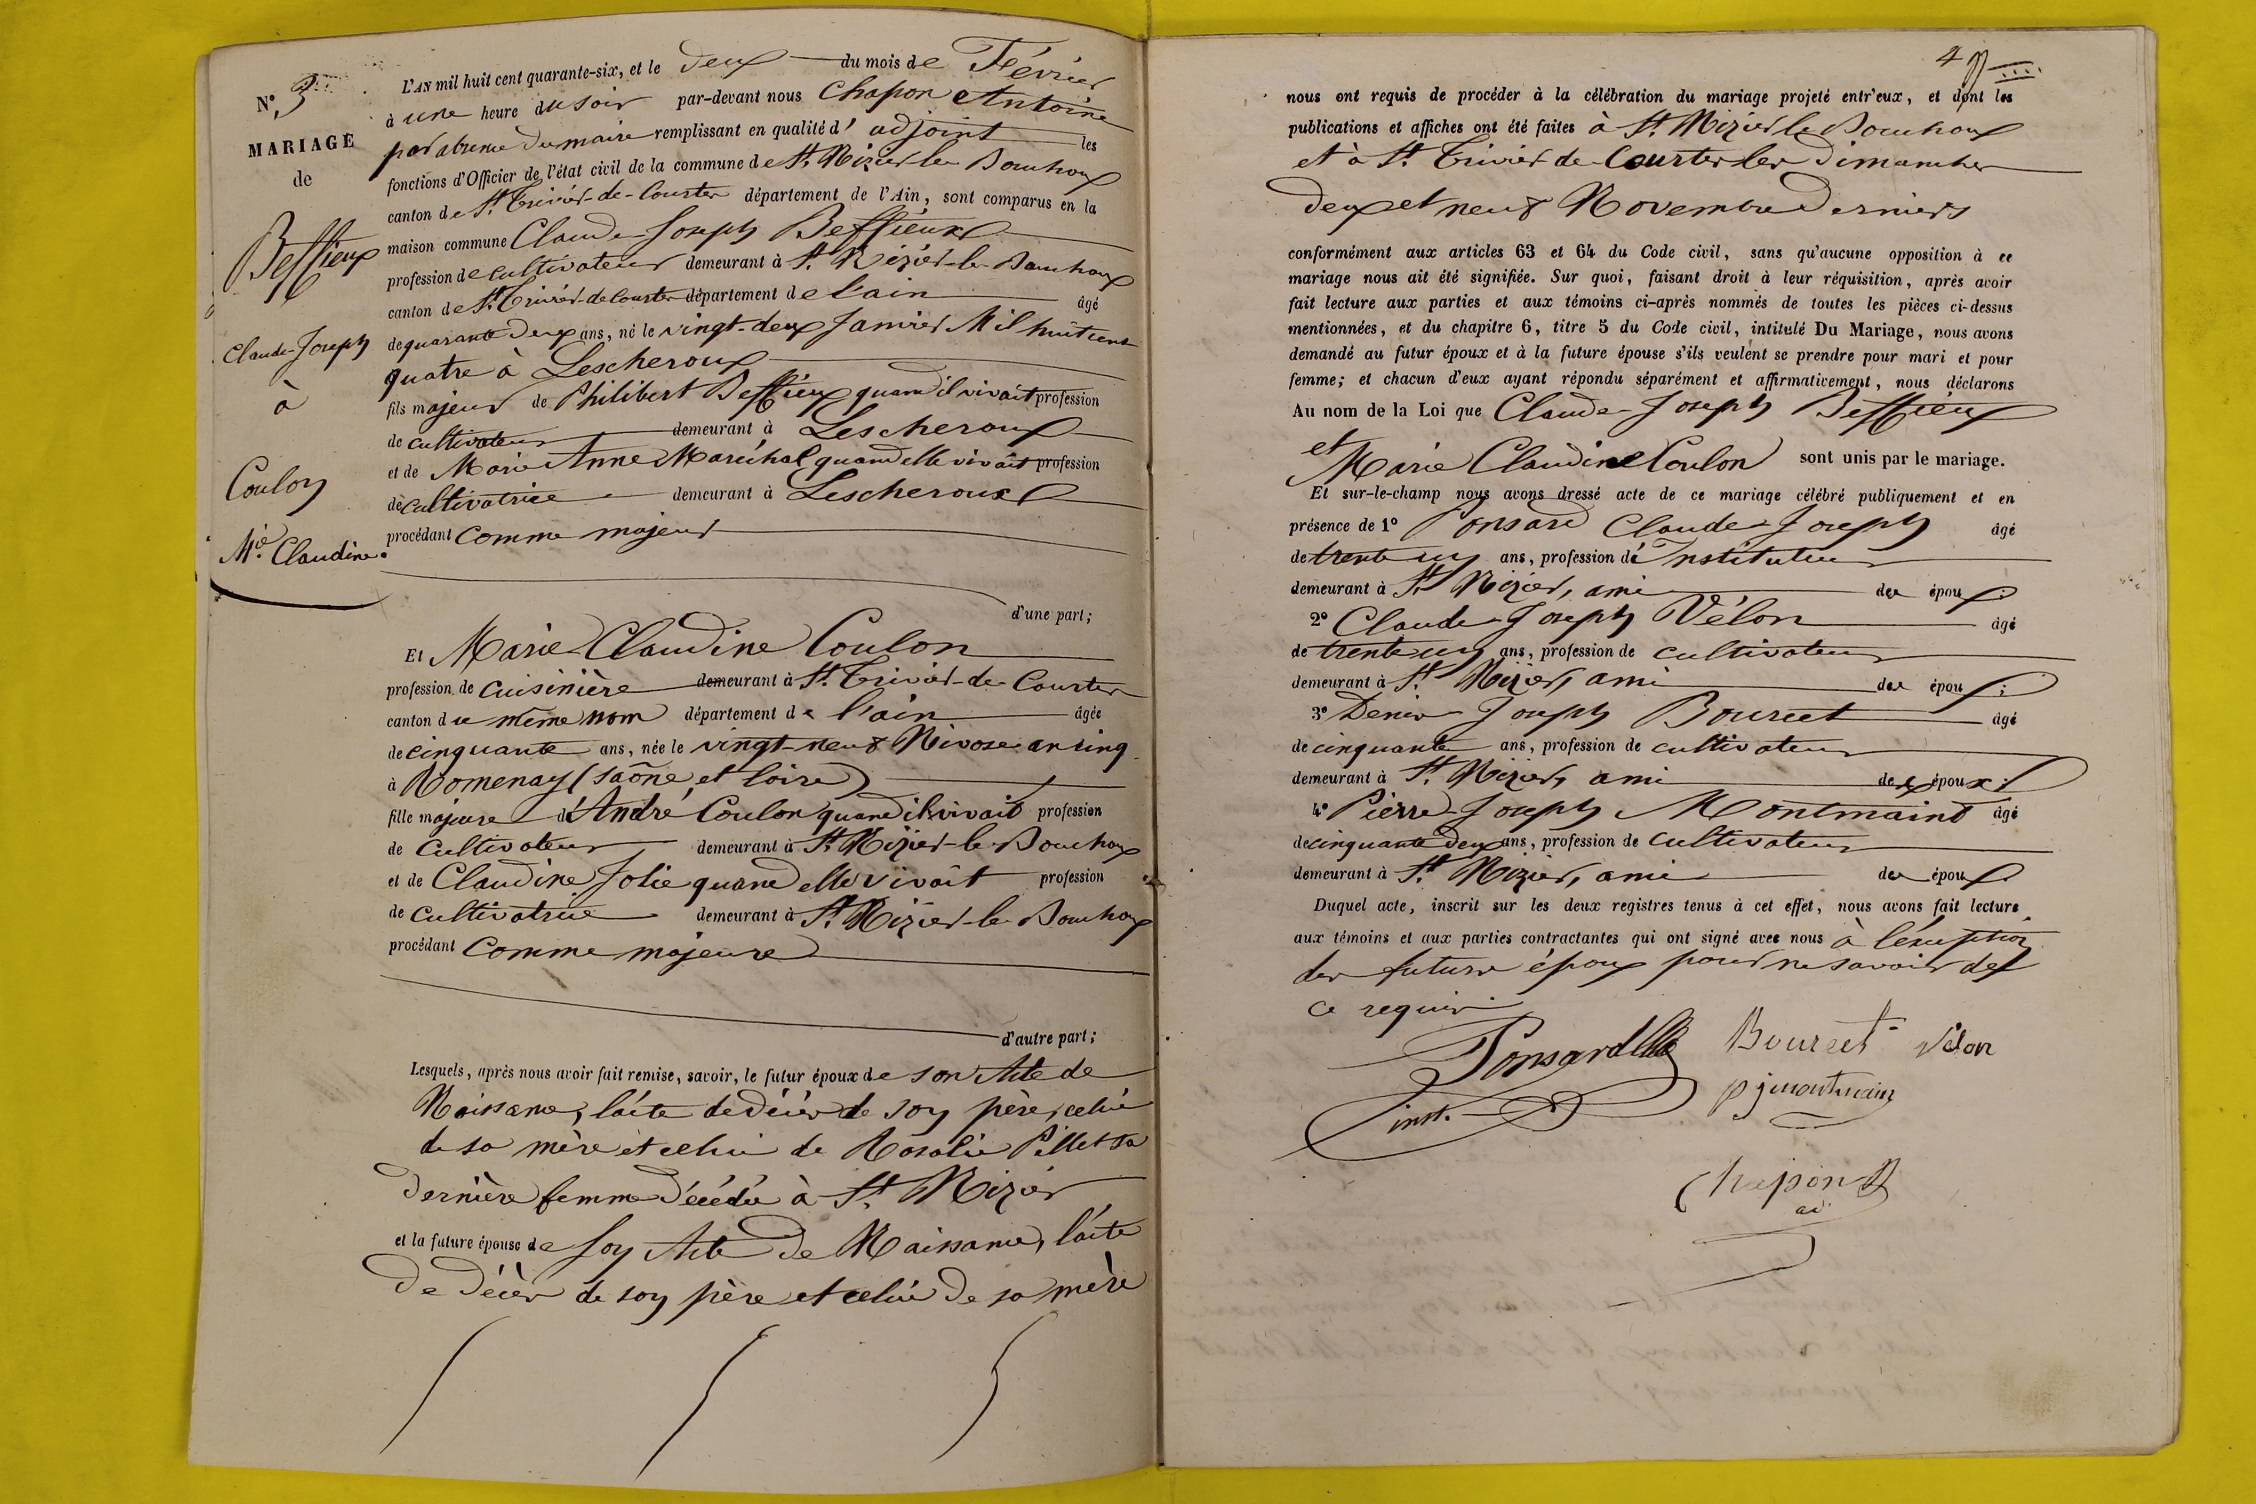 N° 3
MARIAGE
de
Beffieux
Claude-Joseph
à
Coulon
Mie Claudine.
L'AN mil huit cent quarante-six, et le deux du mois de Février
à une heure du soir par-devant nous Chapon Antoine
par absence du maire remplissant en qualité d' adjoint les
fonctions d'Officier de l'état civil de la commune de St. Nizier le Bouchoux
canton de St. Trivier-de-Courtes département de l'Ain, sont comparus en la
maison commune Claude Joseph Beffieux
profession de cultivateur demeurant à St. Nizier-le-Bouchoux
canton de St. Trivier-de Courtes département de l'ain âgé
de quarante deux ans, né le vingt-deux Janvier Mil huit cent
quatre à Lescheroux
fils majeur de Philibert Beffieux quand il vivait profession
de cultivateur demeurant à Lescheroux
et de Marie Anne Maréchal quand elle vivait profession
de cultivatrice demeurant à Lescheroux
procédant comme majeur
d'une part;
Et Marie-Claudine Coulon
profession de cuisinière demeurant à St. Trivier-de-Courtes
canton du même nom département de l'ain âgée
de cinquante ans, née le vingt-neuf Nivose an cinq
à Romenay (saône et loire)
fille majeure d'André Coulon quand il vivait profession
de cultivateur demeurant à St. Nizier-le-Bouchoux
et de Claudine Jolie quand elle vivait profession
de cultivatrice demeurant à St. Nizier-le-Bouchoux
procédant comme majeure
d'autre part;
Lesquels, après nous avoir fait remise, savoir, le futur époux de son Acte de
Naissance, l'acte de décès de son père, celui
de sa mère et celui de Rosalie Pillet sa
dernière femme décédée à St. Nizier
et la future épouse de son Acte de Naissance, l'acte
de décès de son père et celui de sa mère
4
nous ont requis de procéder à la célébration du mariage projeté entr'eux, et dont les
publications et affiches ont été faites à St. Nizier le Bouchoux
et à St. Trivier de Courtes les dimanches
deux et neuf Novembre derniers
conformément aux articles 63 et 64 du Code civil, sans qu'aucune opposition à ce
mariage nous ait été signifiée. Sur quoi, faisant droit à leur réquisition, après avoir
fait lecture aux parties et aux témoins ci-après nommés de toutes les pièces ci-dessus
mentionnées, et du chapitre 6, titre 5 du Code civil, intitulé Du Mariage, nous avons
demandé au futur époux et à la future épouse s'ils veulent se prendre pour mari et pour
femme; et chacun d'eux ayant répondu séparément et affirmativement, nous déclarons
Au nom de la Loi que Claude-Joseph Beffieux
et Marie Claudine Coulon sont unis par le mariage.
Et sur-le-champ nous avons dressé acte de ce mariage célébré publiquement et en
présence de 1° Ponsard Claude-Joseph âgé
de trente un ans, profession d'Instituteur
demeurant à St. Nizier, ami des époux;
2° Claude-Joseph Vélon âgé
de trente un ans, profession de cultivateur
demeurant à St. Nizier, ami des époux;
3° Denis-Joseph Bourcet âgé
de cinquante ans, profession de cultivateur
demeurant à St. Nizier, ami des époux;
4° Pierre-Joseph Montmaint âgé
de cinquante deux ans, profession de cultivateur
demeurant à St. Nizier, ami des époux
Duquel acte, inscrit sur les deux registres tenus à cet effet, nous avons fait lecture
aux témoins et aux parties contractantes qui ont signé avec nous à l'exception
des futurs époux pour ne savoir de
ce requis.
Ponsard Bourcet Vélon
inst. pjmontmain
Chapon
ad.